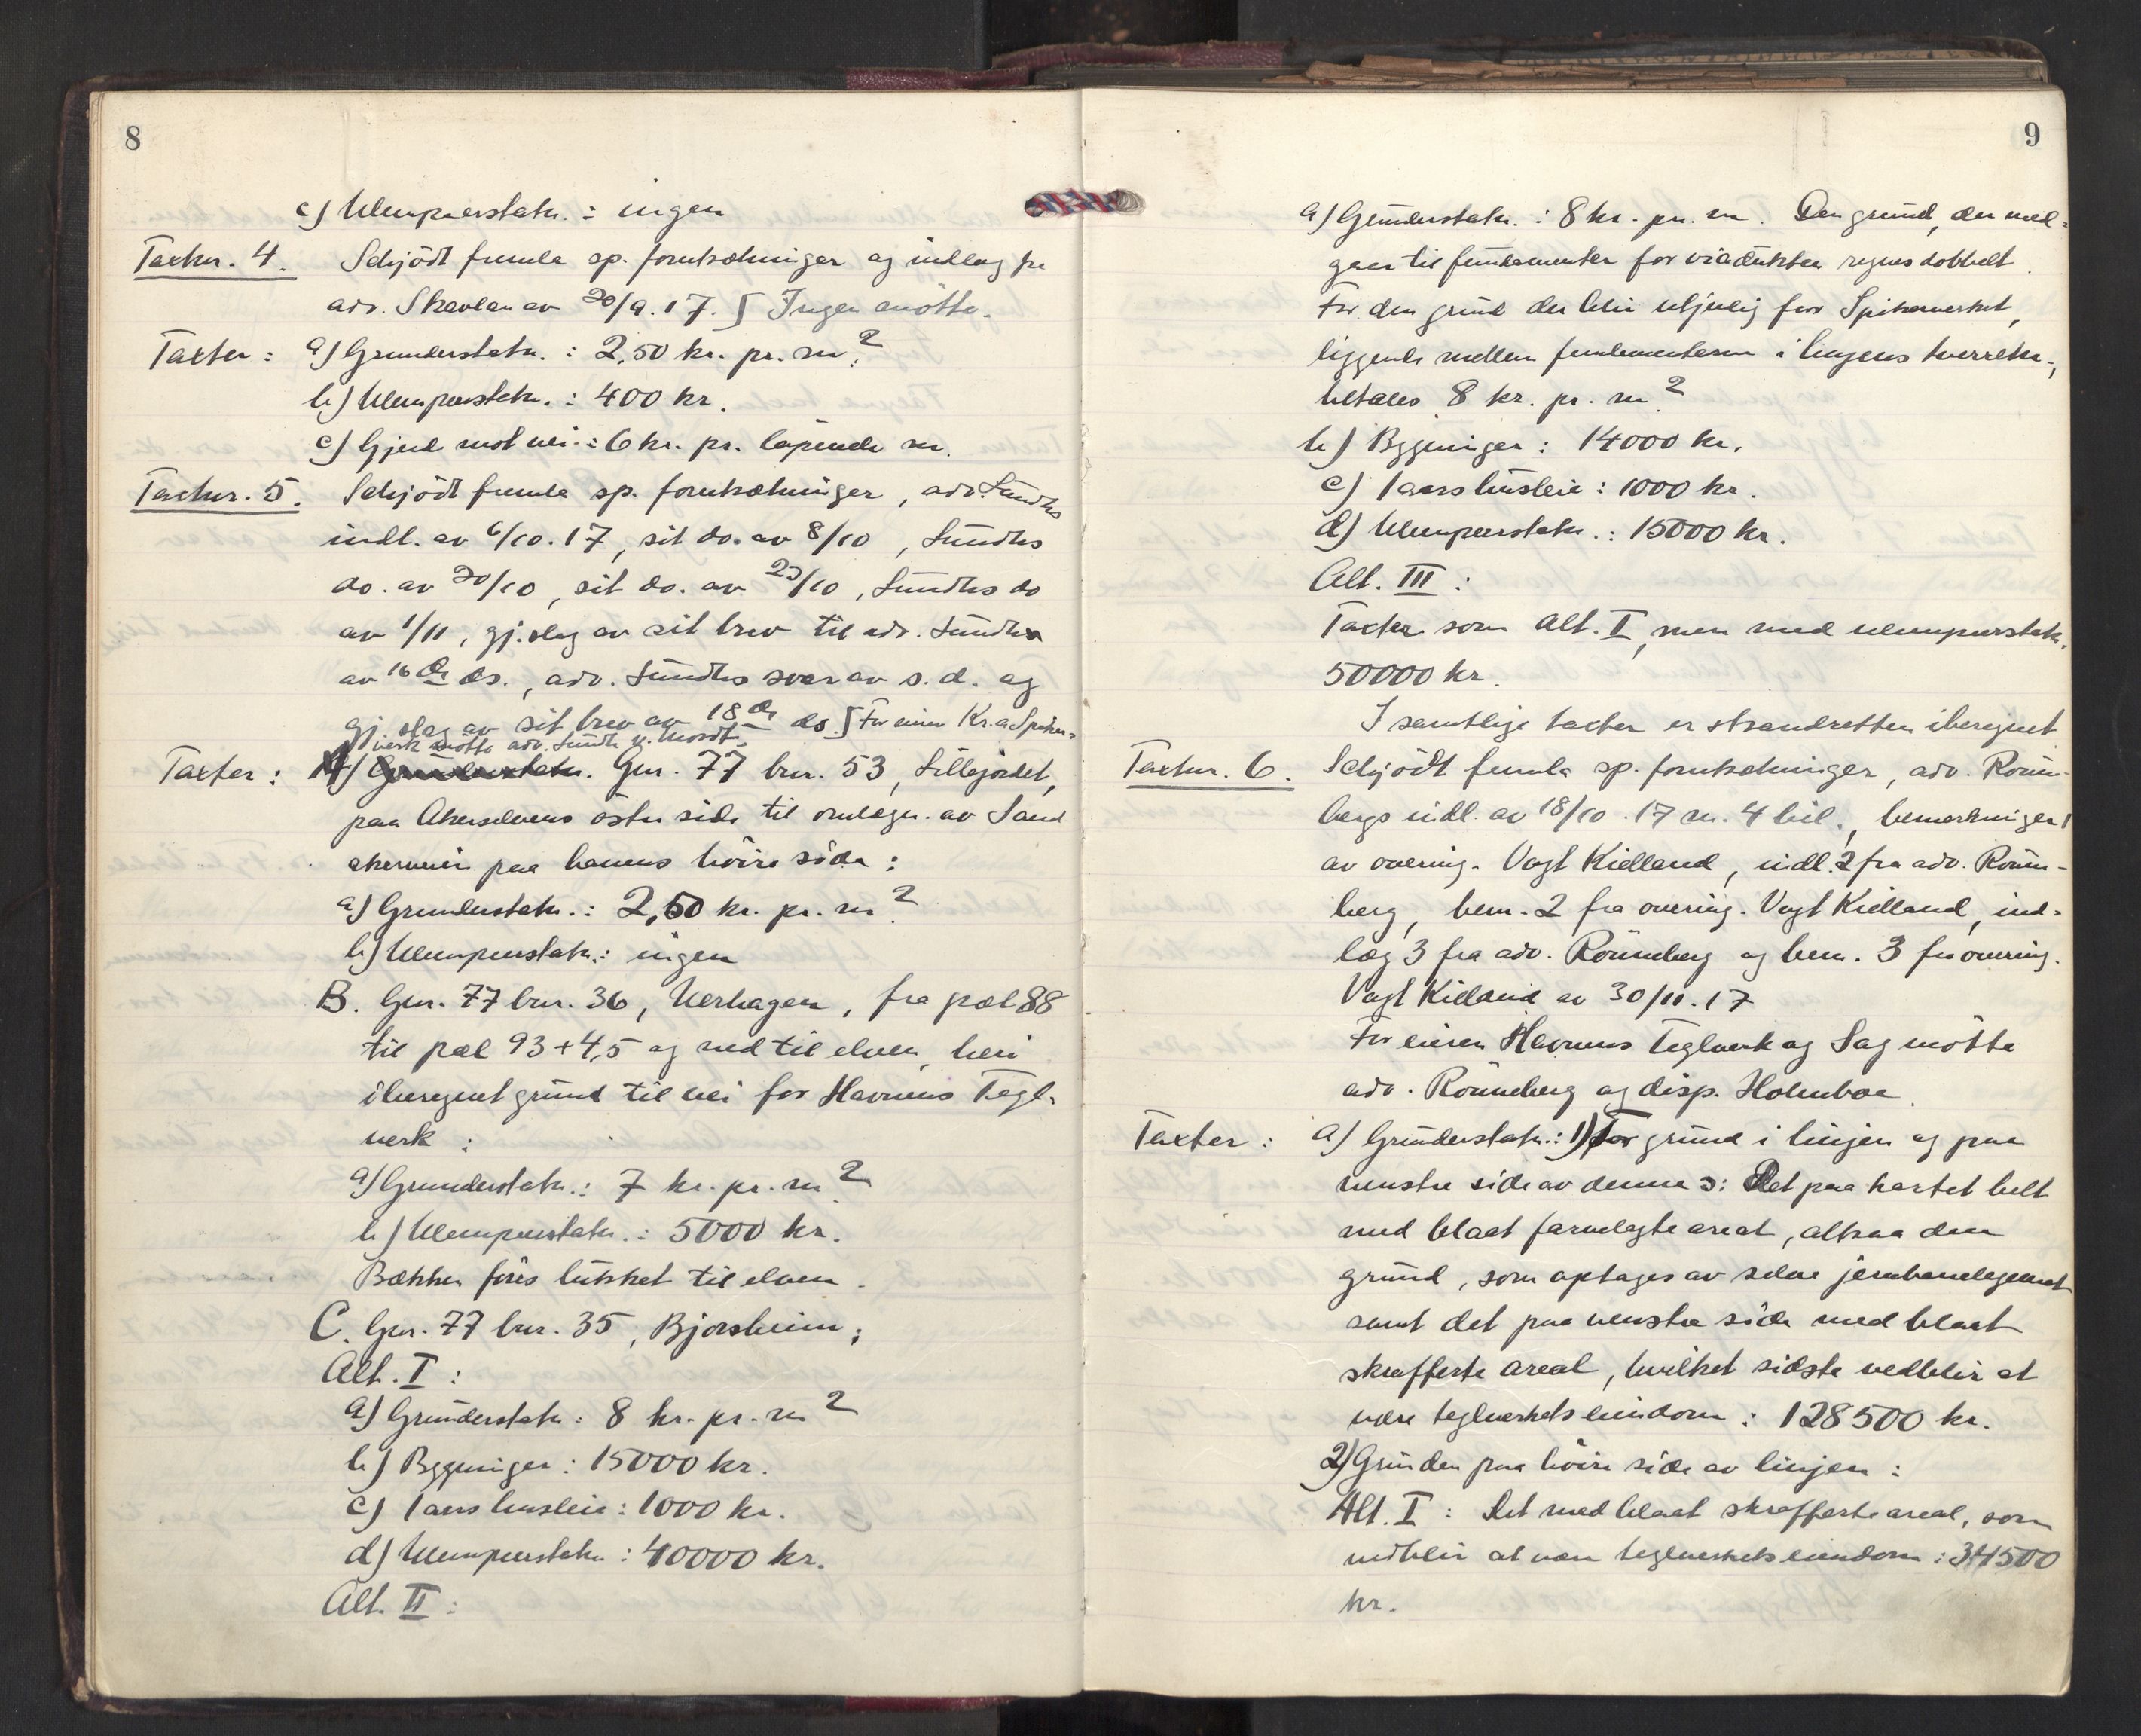 8
c) Ulemperstatn.: ingen
Taxtnr. 4. Schjödt fremla sp. forutsætninger og indlæg fra
adv. Skavlan av 20/9.17. ∫ Ingen mötte.
Taxter: a) Grunderstatn.: 2,50 kr. pr. m².
b) Ulemperstatn.: 400 kr.
c) Gjerd mot vei: 6 kr. pr. löpende m.
Taxtnr. 5. Schjödt fremla sp. forutsætninger, adv. Sundts
indl. av 6/10.17, sit do. av 8/10, Sundts
do. av 20/10, sit do. av 23/10, Sundts do
av 1/11, gj.slag av sit brev til adv. Sundt
av 16de ds., adv. Sundts svar av s.d. og
gj.slag av sit brev av 18de ds. ∫ For eieren Kr.a Spiker-
verk mötte adv. Sundt og Mordt.
Taxter: A) Grunderstatn. Gnr. 77 bnr. 53, Lillejordet,
paa Akerselvens östre side til omlægn. av Sand
akerveien paa banens höire side:
a) Grunderstatn.: 2,50 kr. pr. m².
b) Ulemperstatn.: ingen
B. Gnr. 77 bnr. 36, Verhagen, fra pæl 88
til pæl 93+4,5 og ned til elven, heri
iberegnet grund til vei for Havnens Tegl-
verk:
a) Grunderstatn.: 7 kr. pr. m².
b) Ulemperstatn.: 5000 kr.
Bækken föres lukket til elven.
C. Gnr. 77 bnr. 35, Bjorsheim;
Alt. I:
a) Grunderstatn: 8 kr. pr. m²
b) Bygninger: 15000 kr.
c) 1 aars husleie: 1000 kr.
d) Ulemperstatn: 40000 kr.
Alt. II:
9
a) Grunderstatn.: 8 kr. pr. m. Den grund, der med-
gaar til fundamenter for viadukten regnes dobbelt.
For den grund der blir utjenlig for Spikerverket,
liggende mellem fundamenterne i linjens tverretn.,
betales 8 kr. pr. m².
b) Bygninger: 14000 kr.
c) 1 aars husleie: 1000 kr.
d) Ulemperstatn.: 15000 kr.
Alt. III:
Taxter som Alt. I, men med ulemperstatn.
50000 kr.
I samtlige taxter er strandretten iberegnet
Taxtnr. 6. Schjödt fremla sp. forutsætninger, adv. Rönne-
bergs indl. av 18/10.17 m. 4 bil., bemerkninger 1
av overing. Vogt Kielland, indl. 2 fra adv. Rönne-
berg, bem. 2 fra overing. Vogt Kielland, ind-
læg 3 fra adv. Rönneberg og bem. 3 fra overing.
Vogt Kielland av 30/11.17
For eieren Havnens Teglverk og Sag mötte
adv. Rönneberg og disp. Holmboe.
Taxter: a) Grunderstatn.: 1) For grund i linjen og paa
venstre side av denne ɔ: Det paa kartet helt
med blaat farvelagte areal, altsaa den
grund, som optages av selve jernbanelegemet
samt det paa venstre side med blaat
skrafferte areal, hvilket sidste vedblir at
være teglverkets eiendom: 128500 kr.
2) Grunden paa höire side av linjen:
Alt. I: Det med blaat skrafferte areal, som
vedblir at være teglverkets eiendom: 34500
kr.